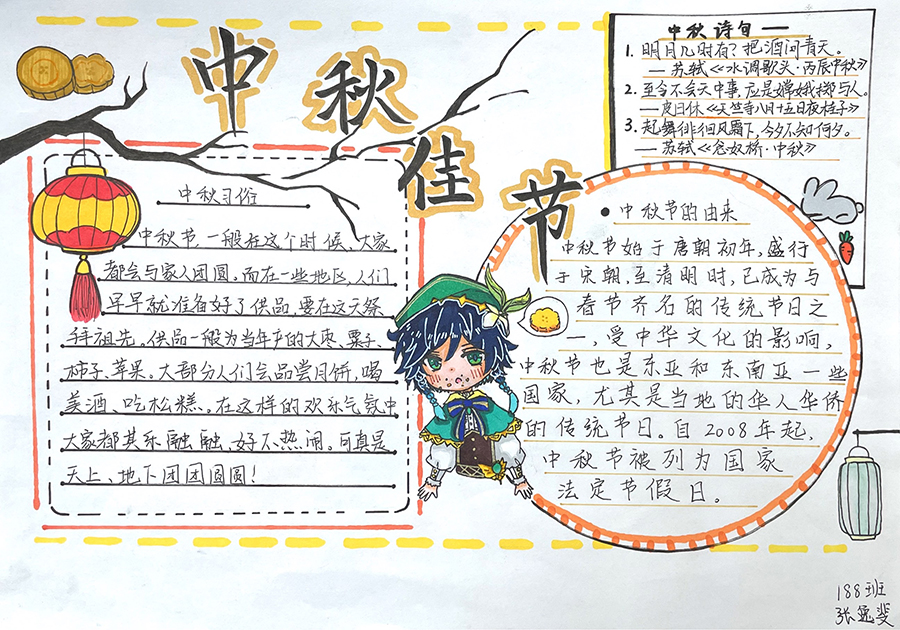 中秋佳节
中秋诗句一
1. 明月几时有?把酒问青天。
— 苏轼《水调歌头·丙辰中秋》
2. 至今不会天中事,应是嫦娥掷与人。
— 皮日休《天竺寺八月十五日夜桂子》
3. 起舞徘徊风露下,今夕不知何夕。
— 苏轼《念奴桥·中秋》
中秋习俗
中秋节,一般在这个时候,大家
都会与家人团圆。而在一些地区,人们
早早就准备好了供品,要在这天祭
拜祖先,供品一般为当年产的大枣、栗子、
柿子、苹果。大部分人们会品尝月饼,喝
美酒、吃松糕。在这样的欢乐气氛中
大家都其乐融融,好不热闹。可真是
天上、地下团团圆圆!
• 中秋节的由来
中秋节始于唐朝初年,盛行
于宋朝,至清明时,已成为与
春节齐名的传统节日之
一,受中华文化的影响,
中秋节也是东亚和东南亚一些
国家,尤其是当地的华人华侨
的传统节日。自2008年起,
中秋节被列为国家
法定节假日。
188班
张逸斐